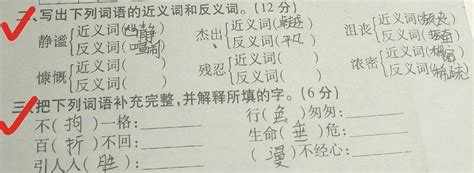 二、写出下列词语的近义词和反义词。(12分)
静谧{近义词(幽静) 反义词(喧闹) 杰出{近义词(卓越) 反义词(平凡) 沮丧{近义词(颓丧) 反义词(振奋)
慷慨{近义词( ) 反义词( ) 残忍{近义词( ) 反义词( ) 浓密{近义词( ) 反义词(稀疏)
三、把下列词语补充完整,并解释所填的字。(6分)
不(拘)一格: 行(色)匆匆:
百(折)不回: 生命(垂)危:
引人入(胜): (漫)不经心: